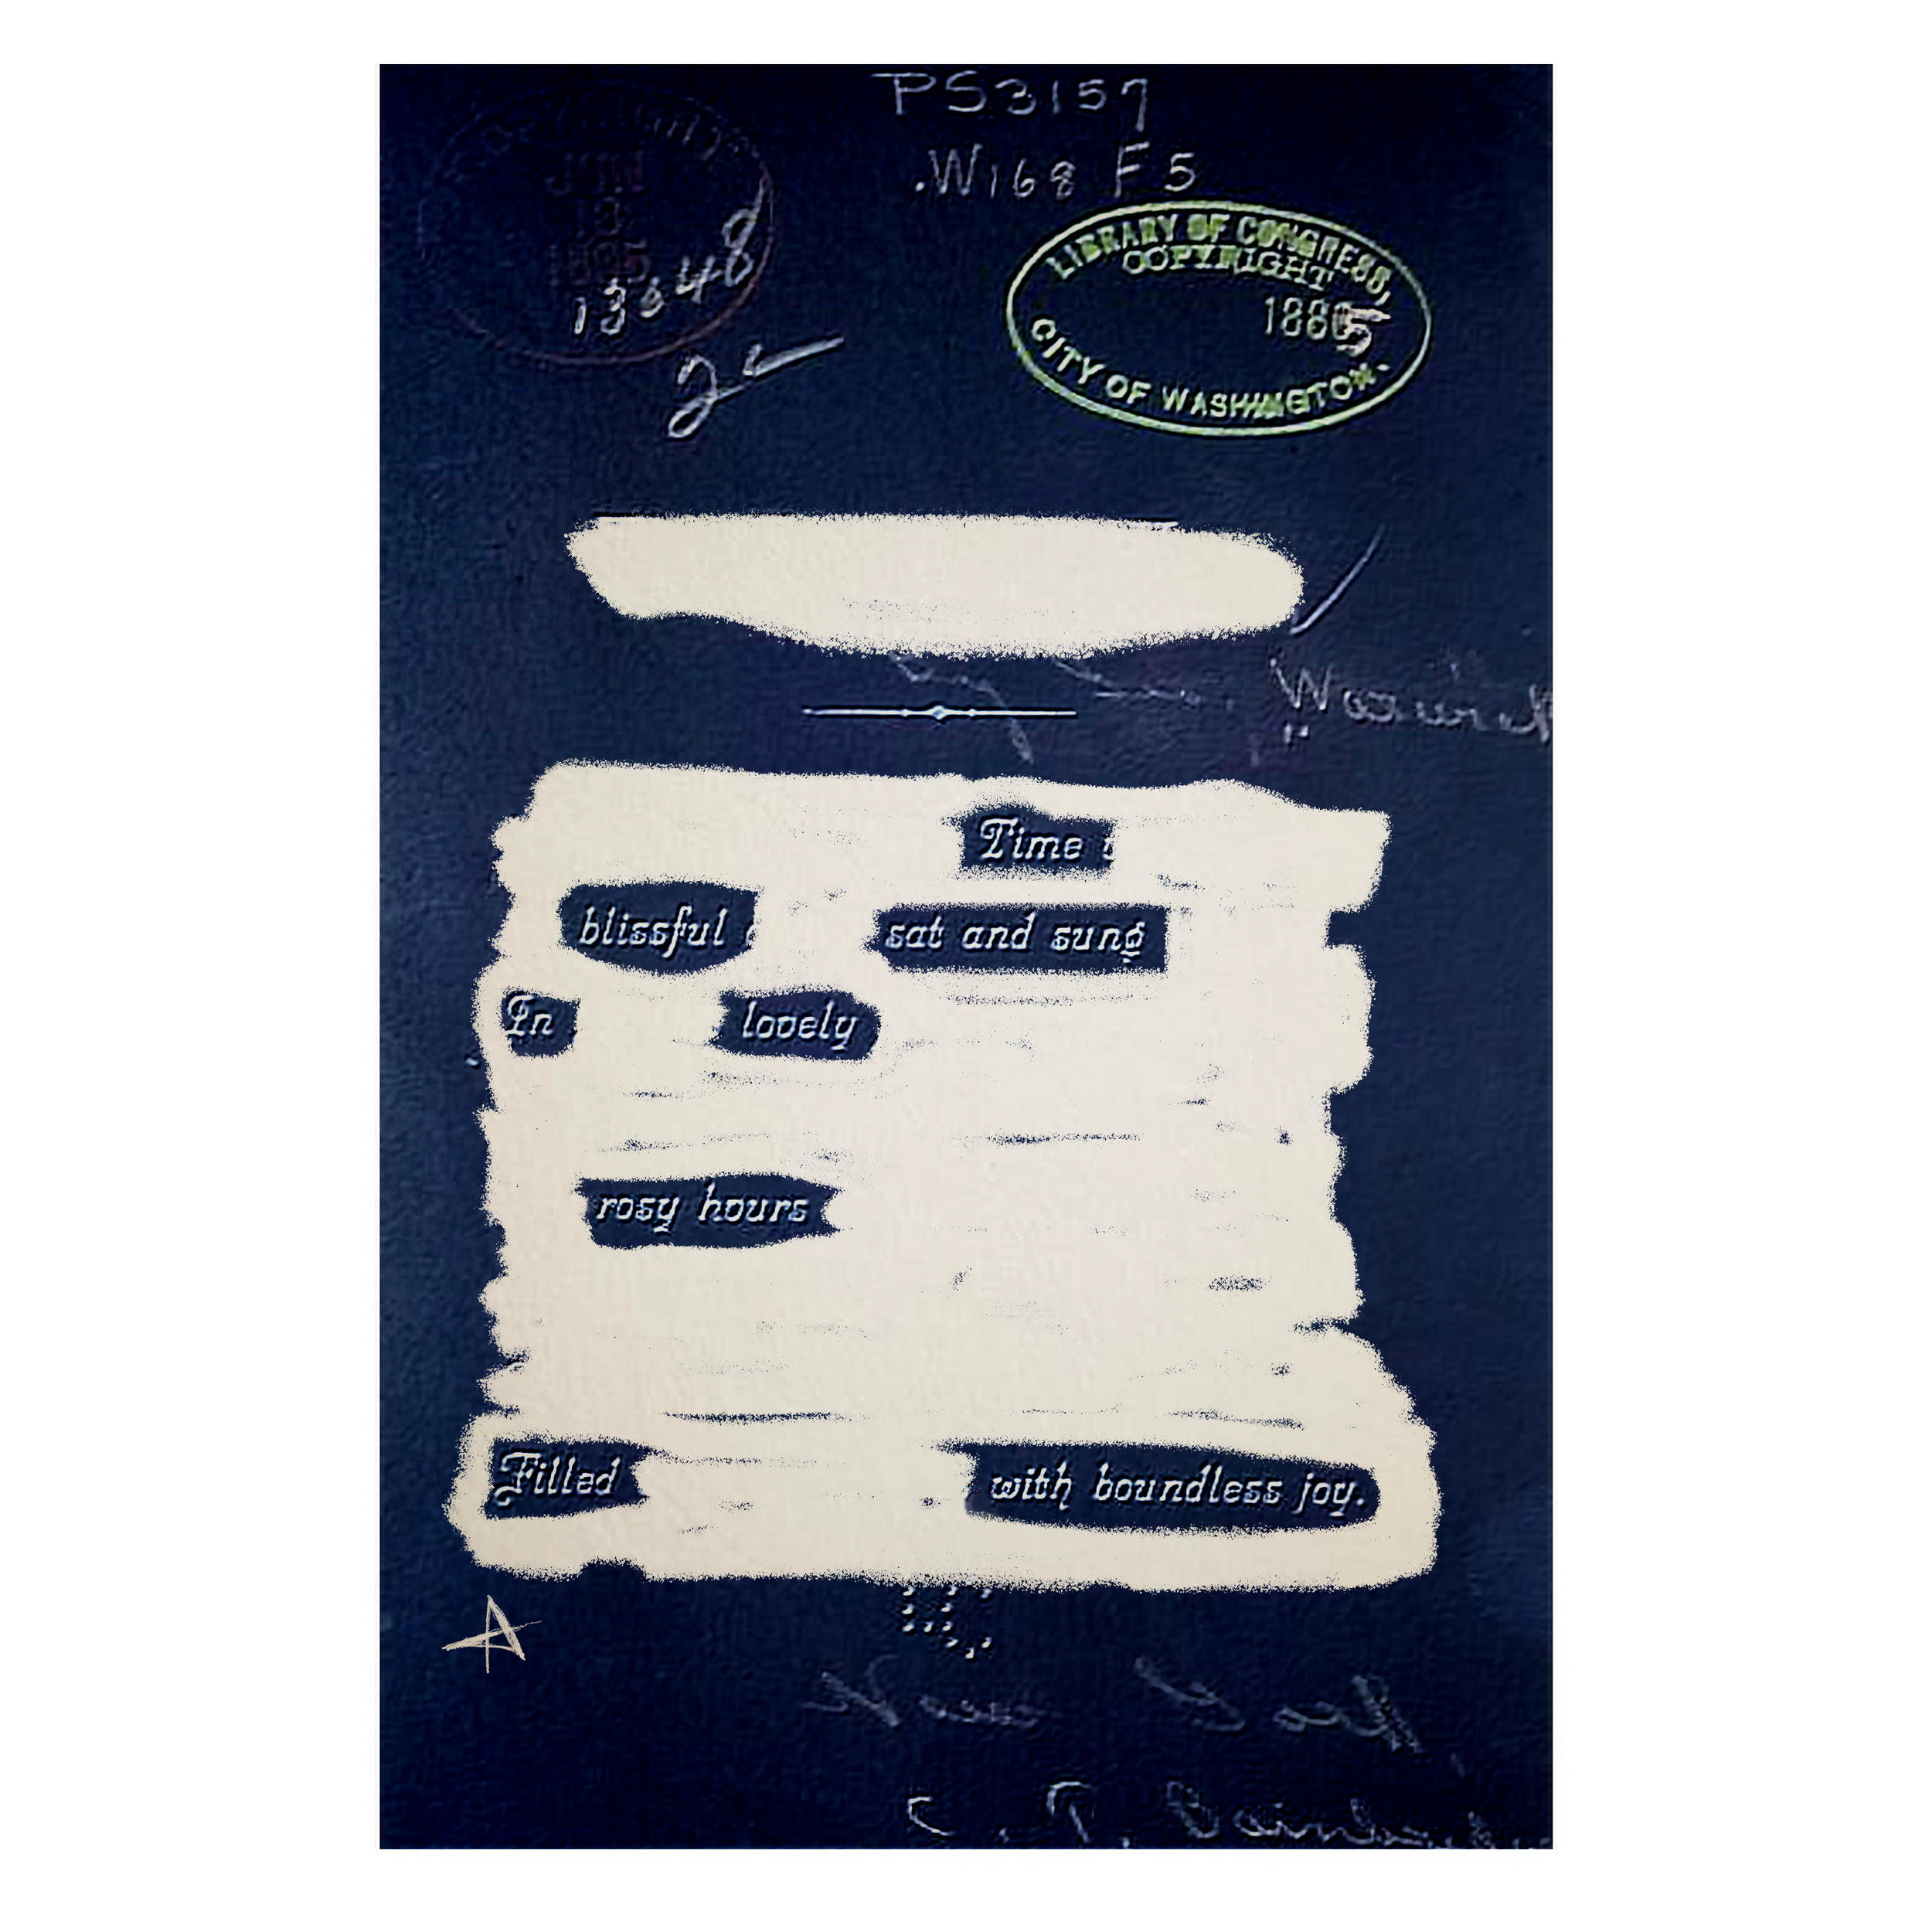 PS3157
.W168 F5
JUN
18
1885
13348
2
LIBRARY OF CONGRESS,
COPYRIGHT
1885
CITY OF WASHINGTON.
Time
blissful sat and sung
In lovely
rosy hours
Filled with boundless joy.
A
New York